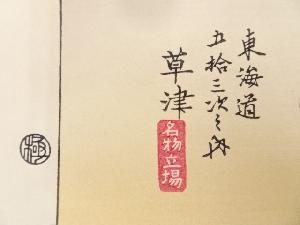 東海道
五拾三次之内
草津
名物立場
極